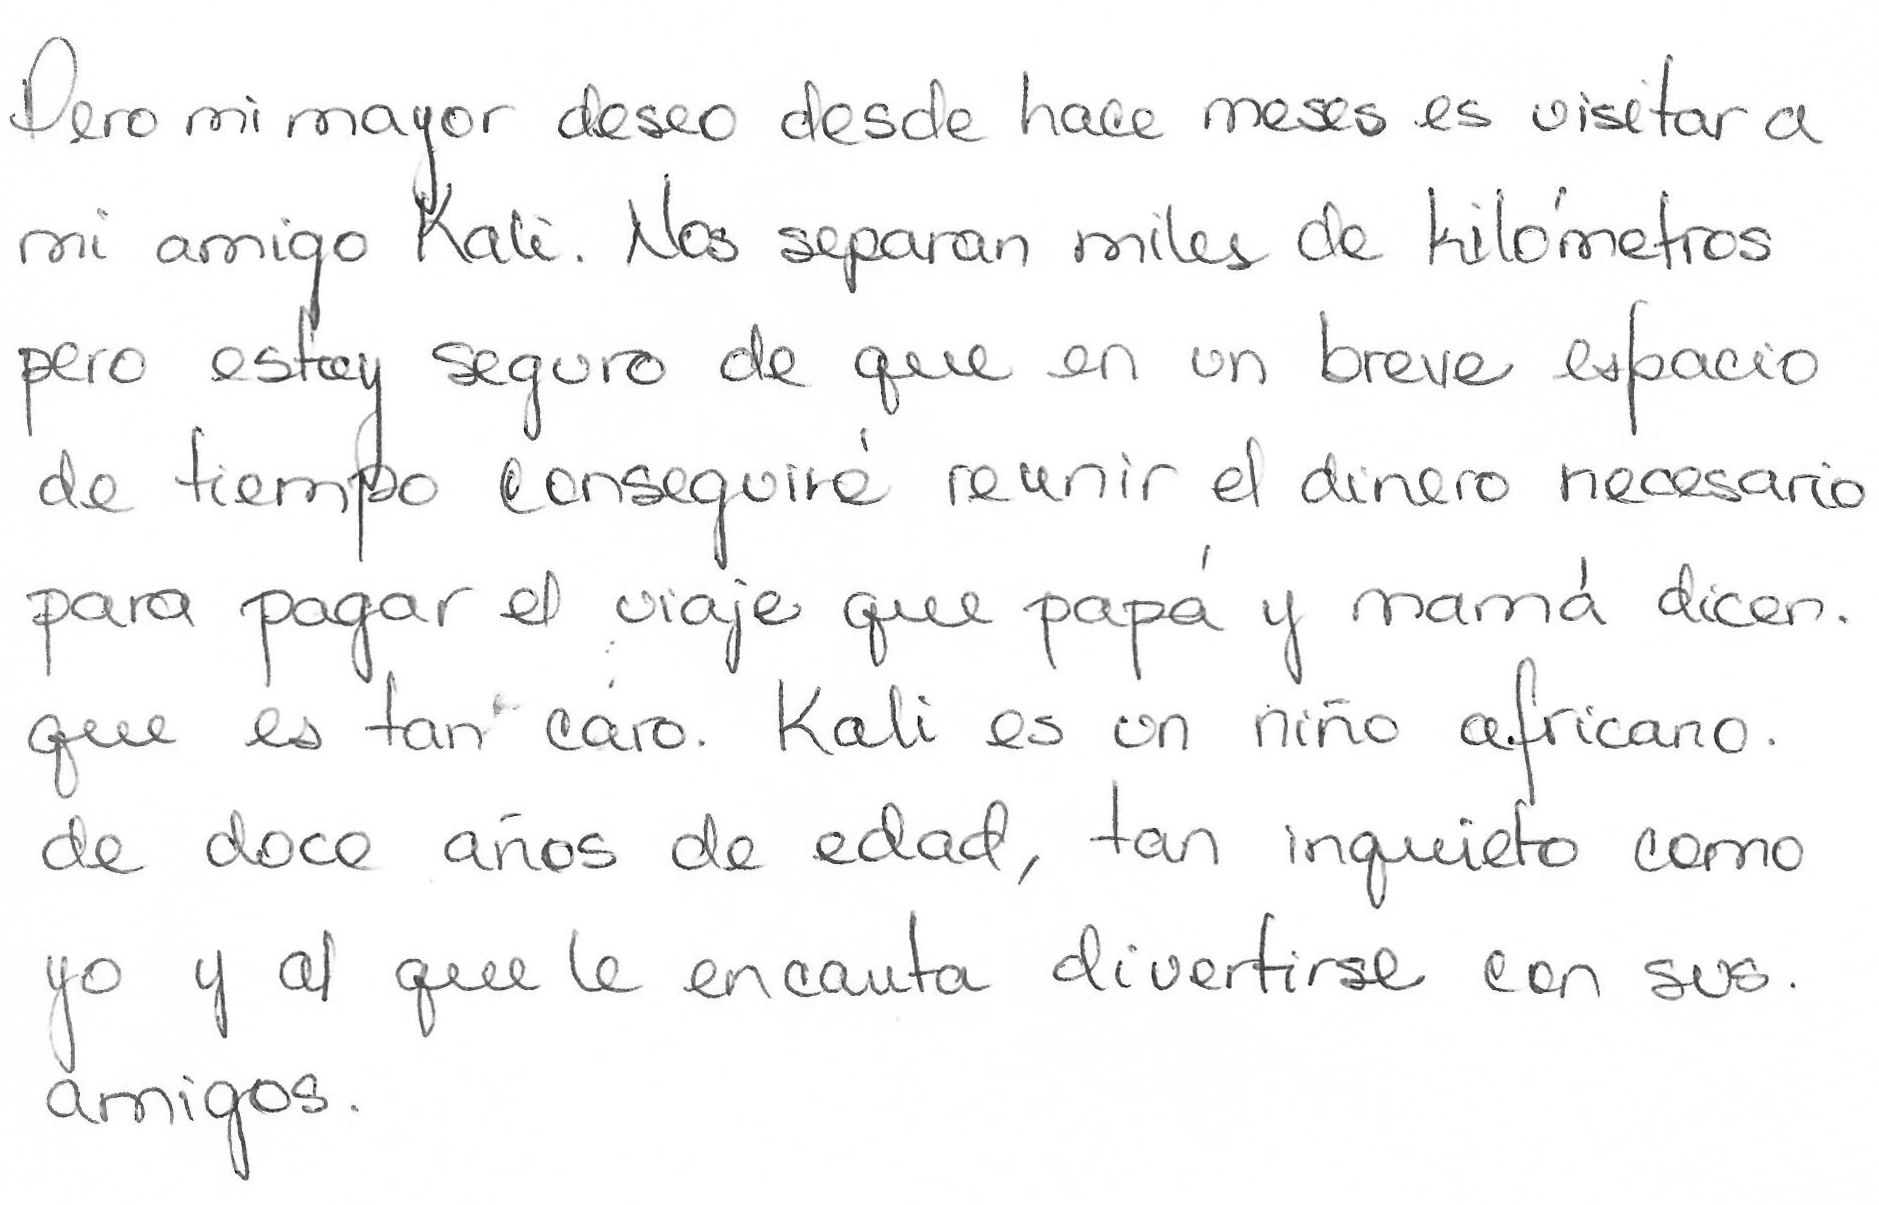 Pero mi mayor deseo desde hace meses es visitar a
mi amigo Kali. Nos separan miles de kilómetros
pero estoy seguro de que en un breve espacio
de tiempo conseguiré reunir el dinero necesario
para pagar el viaje que papá y mamá dicen.
que es tan caro. Kali es un niño africano.
de doce años de edad, tan inquieto como
yo y al que le encanta divertirse con sus.
amigos.